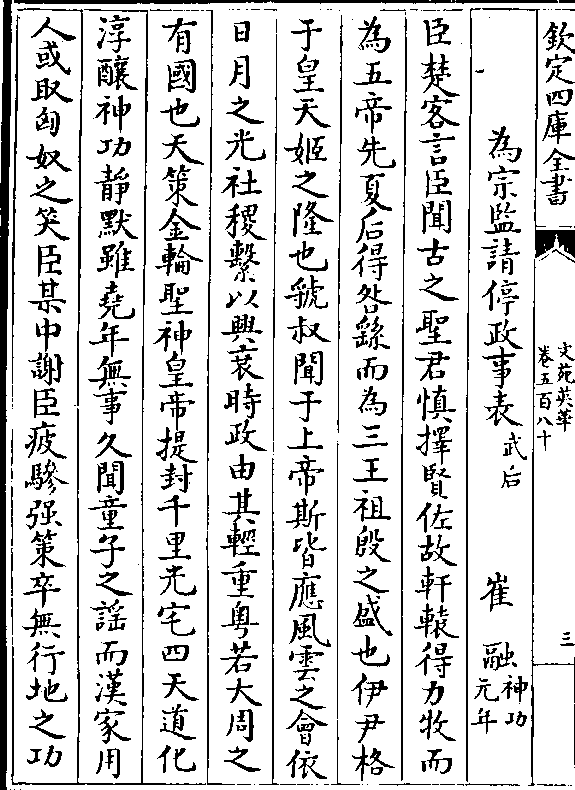 欽定四庫全書
文苑英華
卷五百八十
三
為宗監請停政事表武后 崔融神功元年
臣楚客言臣聞古之聖君慎擇賢佐故軒轅得力牧而
為五帝先夏后得咎繇而為三王祖殷之盛也伊尹格
于皇天姬之隆也虢叔聞于上帝斯皆應風雲之會依
日月之光社稷繫以興衰時政由其輕重粤若大周之
有國也天策金輪聖神皇帝提封千里光宅四天道化
淳釀神功静默雖堯年無事久聞童子之謡而漢家用
人或取匈奴之笑臣某中謝臣疲驂强策卒無行地之功